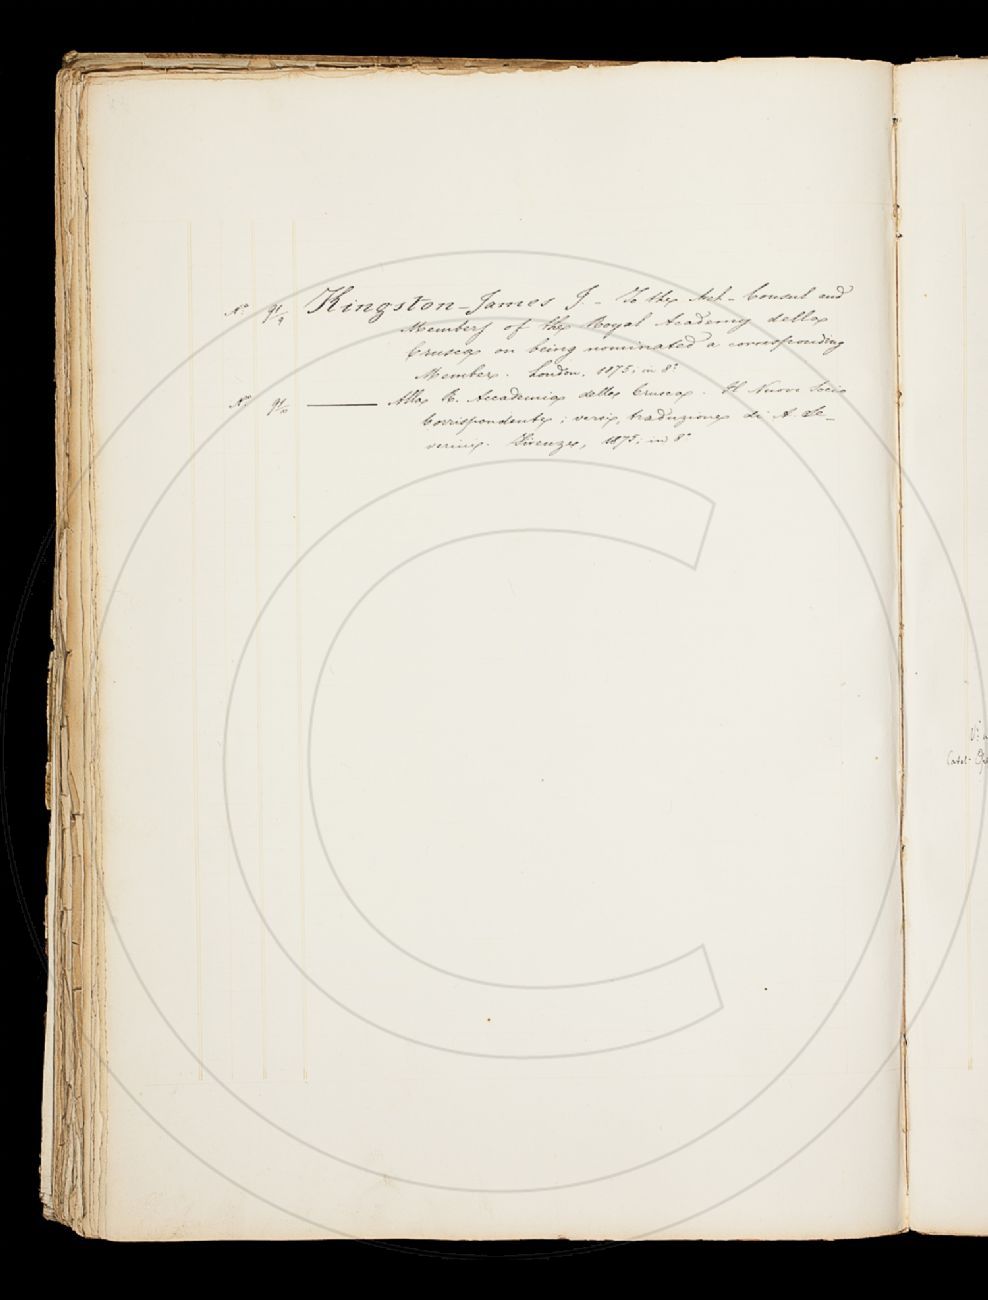 N.° 91/9 Kingston-James J. - To the Arch-Consul and
Members of the Royal Academy della
Crusca on being nominated a corresponding
Member. London, 1875; in 8°
N.° 91/10 ——— Alla R. Accademia della Crusca. Il Nuovo Socio
Corrispondente; versi, traduzione di A. Se-
verini. Firenze, 1875; in 8°
Catal.